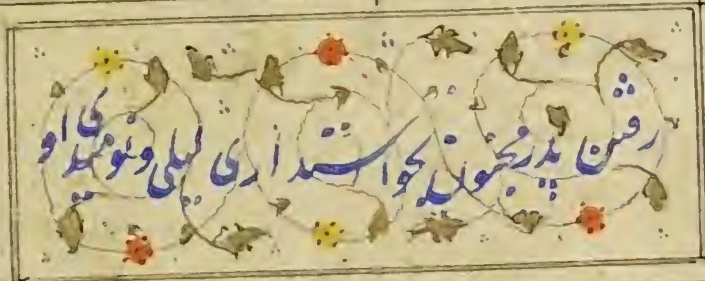 رفتن پدر مجنون بخواستداری لیلی و نومیدی او